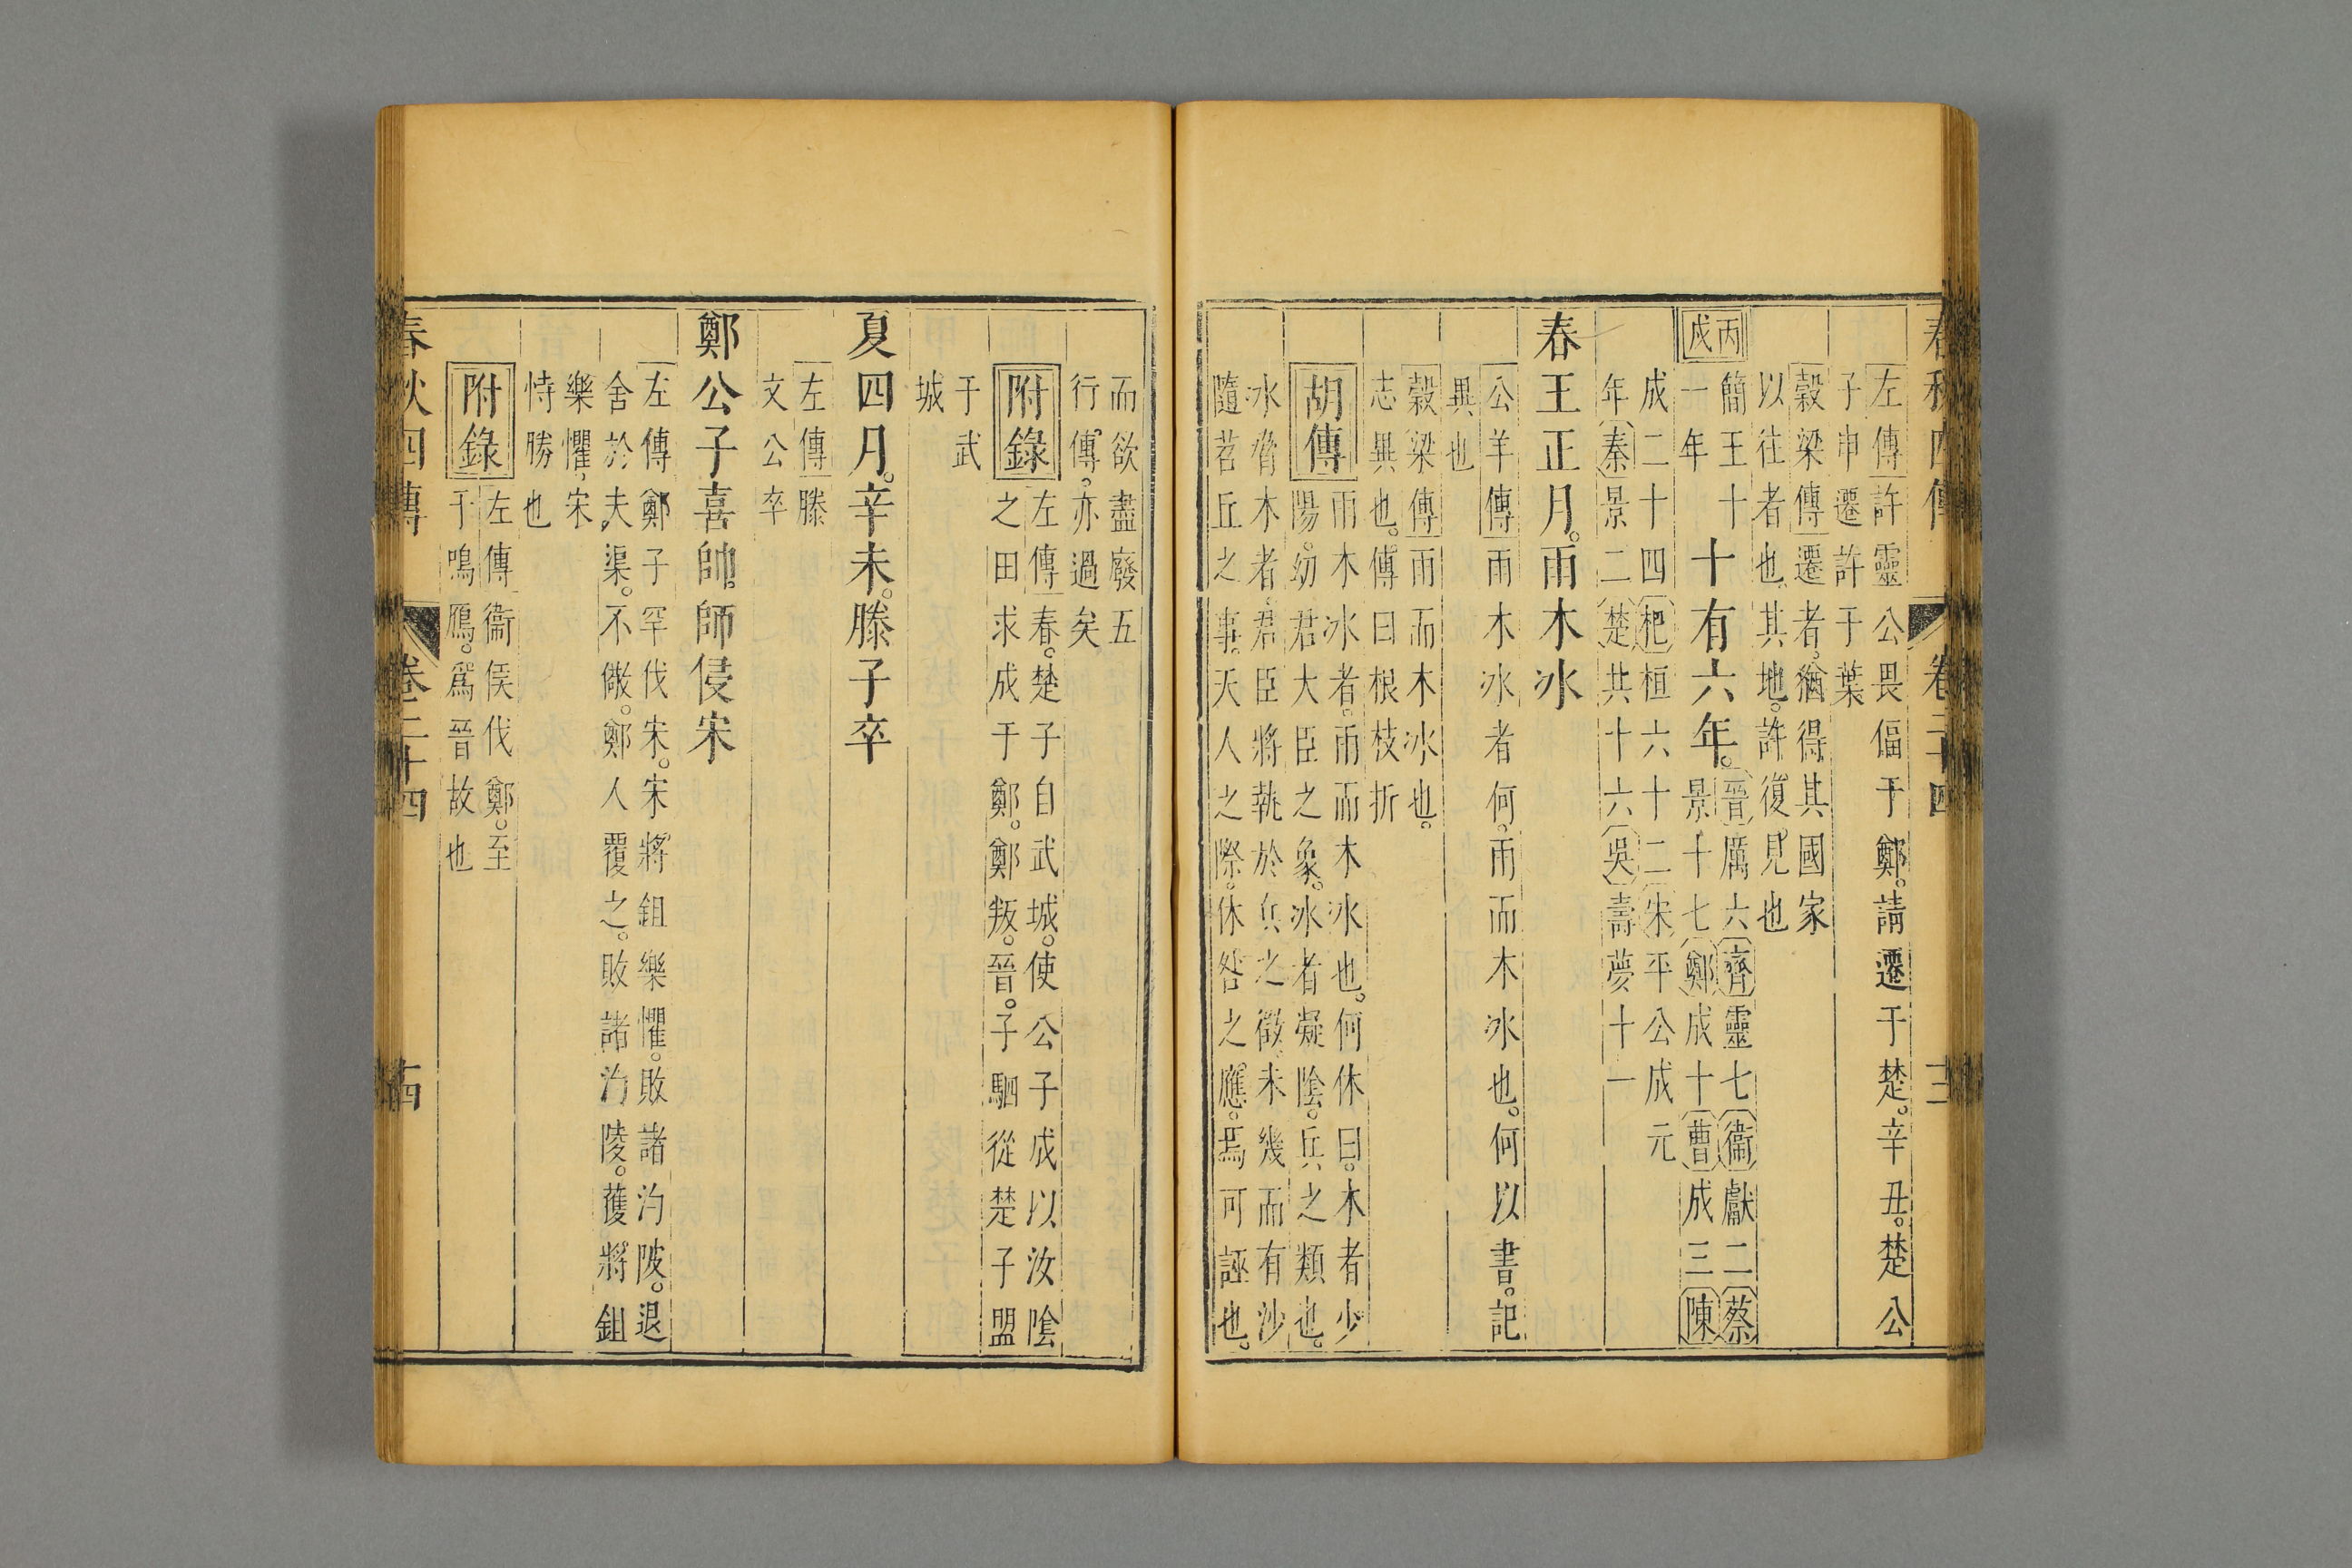 春秋四傳 卷二十四 十三
左傳許靈公畏偪于鄭。請遷于楚。辛丑。楚公
子申遷許于葉
穀梁傳遷者。猶得其國家
以往者也。其地。許復見也
丙戌
簡王十
一年
十有六年。
晉厲六齊靈七衞獻二蔡
景十七鄭成十曹成三陳
成二十四杞桓六十二宋平公成元
年秦景二楚共十六吳壽夢十一
春王正月。雨木冰
公羊傳雨木冰者何。雨而木冰也。何以書。記
異也
穀梁傳雨而木冰也。
志異也。傳曰根枝折
胡傳
雨木冰者。雨而木冰也。何休曰。木者少
陽。幼君大臣之象。冰者凝陰。兵之類也。
冰脅木者。君臣將執於兵之徵。未幾而有沙
隨苕丘之事。天人之際。休咎之應。焉可誣也。
而欲盡廢五
行傳。亦過矣
附錄
左傳春。楚子自武城。使公子成以汝陰
之田求成于鄭。鄭叛。晉。子駟從楚子盟
于武
城
夏四月。辛未。滕子卒
左傳滕
文公卒
鄭公子喜帥。師侵宋
左傳鄭子罕伐宋。宋將鉏樂懼。敗諸汋陂。退
舍於夫渠。不儆。鄭人覆之。敗諸汋陵。獲將鉏
樂懼宋
恃勝也
附錄
左傳衞侯伐鄭。至
于鳴鴈。爲晉故也
春秋四傳 卷二十四 十四